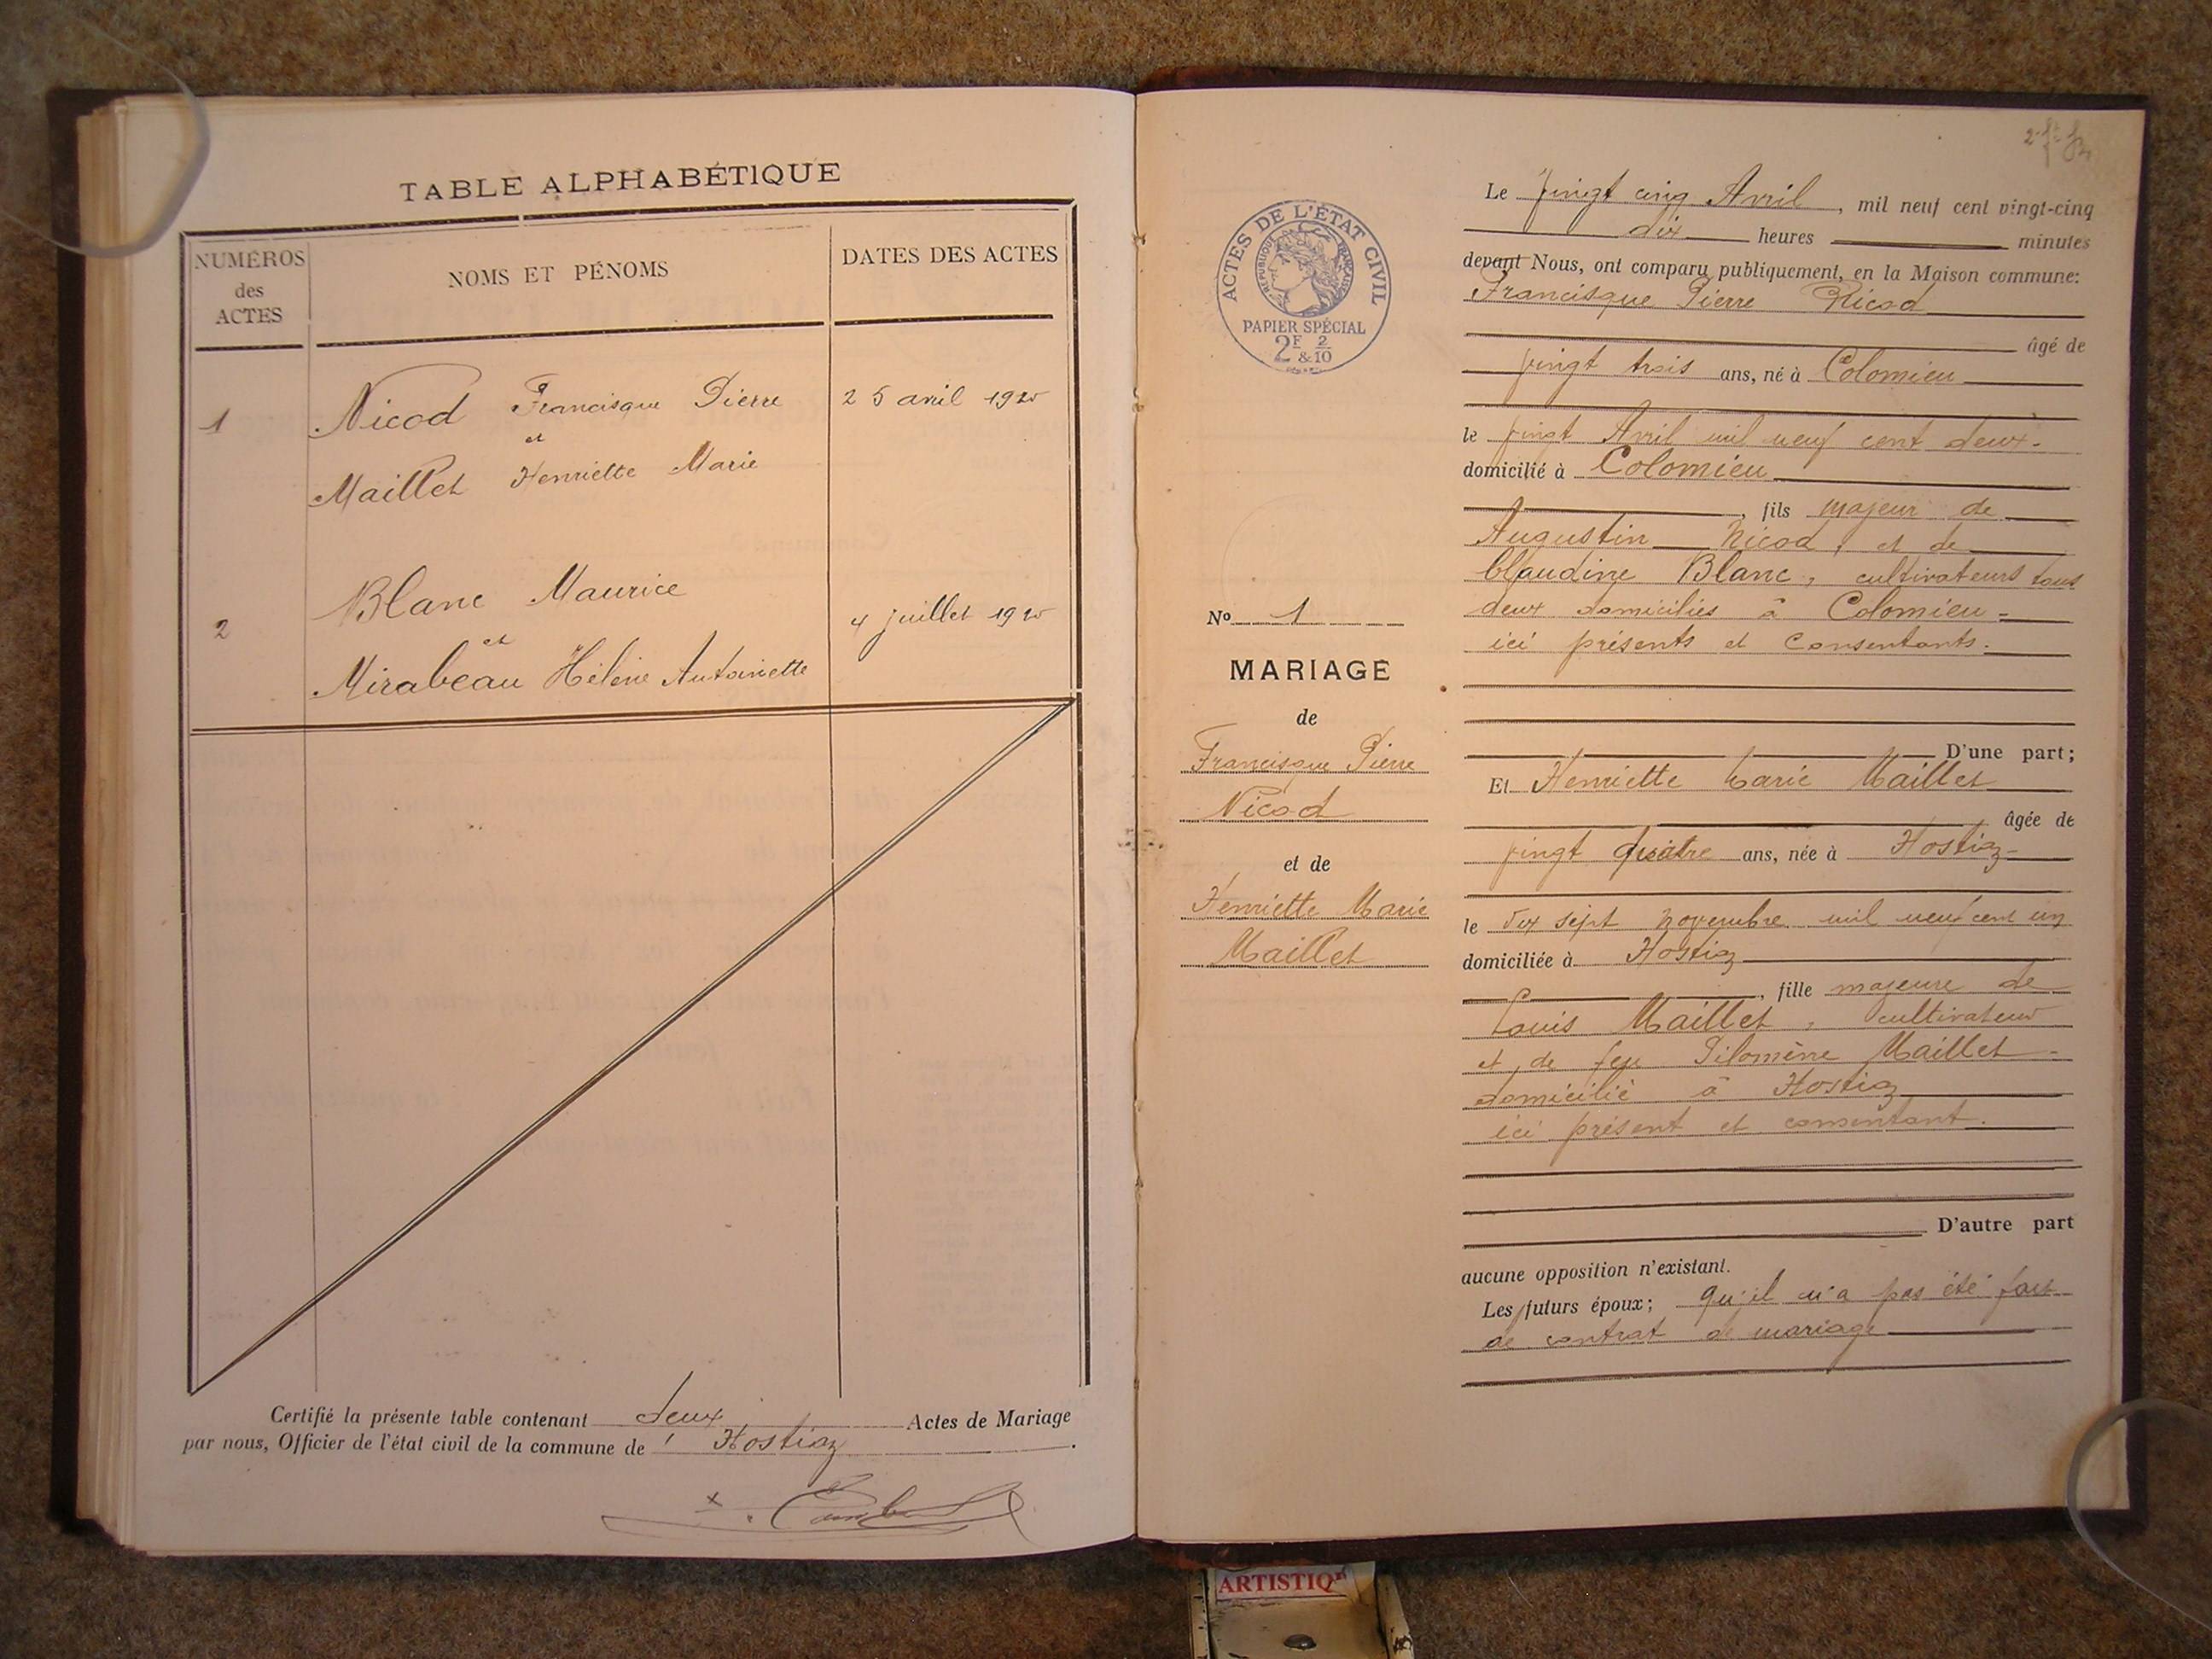 TABLE ALPHABÉTIQUE
NUMÉROS
des
ACTES
NOMS ET PÉNOMS
DATES DES ACTES
1
Nicod Francisque Pierre
25 avril 1925
et
Maillet Henriette Marie
2
Blanc Maurice
4 juillet 1925
et
Mirabeau Hélène Antoinette
Certifié la présente table contenant deux Actes de Mariage
par nous, Officier de l'état civil de la commune de Hostiaz.
ACTES DE L'ÉTAT CIVIL
RÉPUBLIQUE FRANÇAISE
PAPIER SPÉCIAL
2F & 2/10
No 1
MARIAGE
de
Francisque Pierre
Nicod
et de
Henriette Marie
Maillet
Le vingt cinq Avril, mil neuf cent vingt-cinq
dix heures minutes
devant Nous, ont comparu publiquement, en la Maison commune:
Francisque Pierre Nicod
âgé de
vingt trois ans, né à Colomieu
le vingt Avril mil neuf cent deux.
domicilié à Colomieu
, fils majeur de
Augustin Nicod, et de
Claudine Blanc, cultivateurs tous
deux domiciliés à Colomieu
ici présents et Consentants.
D'une part;
Et Henriette Marie Maillet
âgée de
vingt quatre ans, née à Hostiaz
le dix sept novembre mil neuf cent un
domiciliée à Hostiaz
, fille majeure de
Louis Maillet, cultivateur
et de feu Pilomène Maillet
domicilié à Hostiaz
ici présent et consentant.
D'autre part
aucune opposition n'existant.
Les futurs époux; qu'il n'a pas été fait
de contrat de mariage
ARTISTIQ